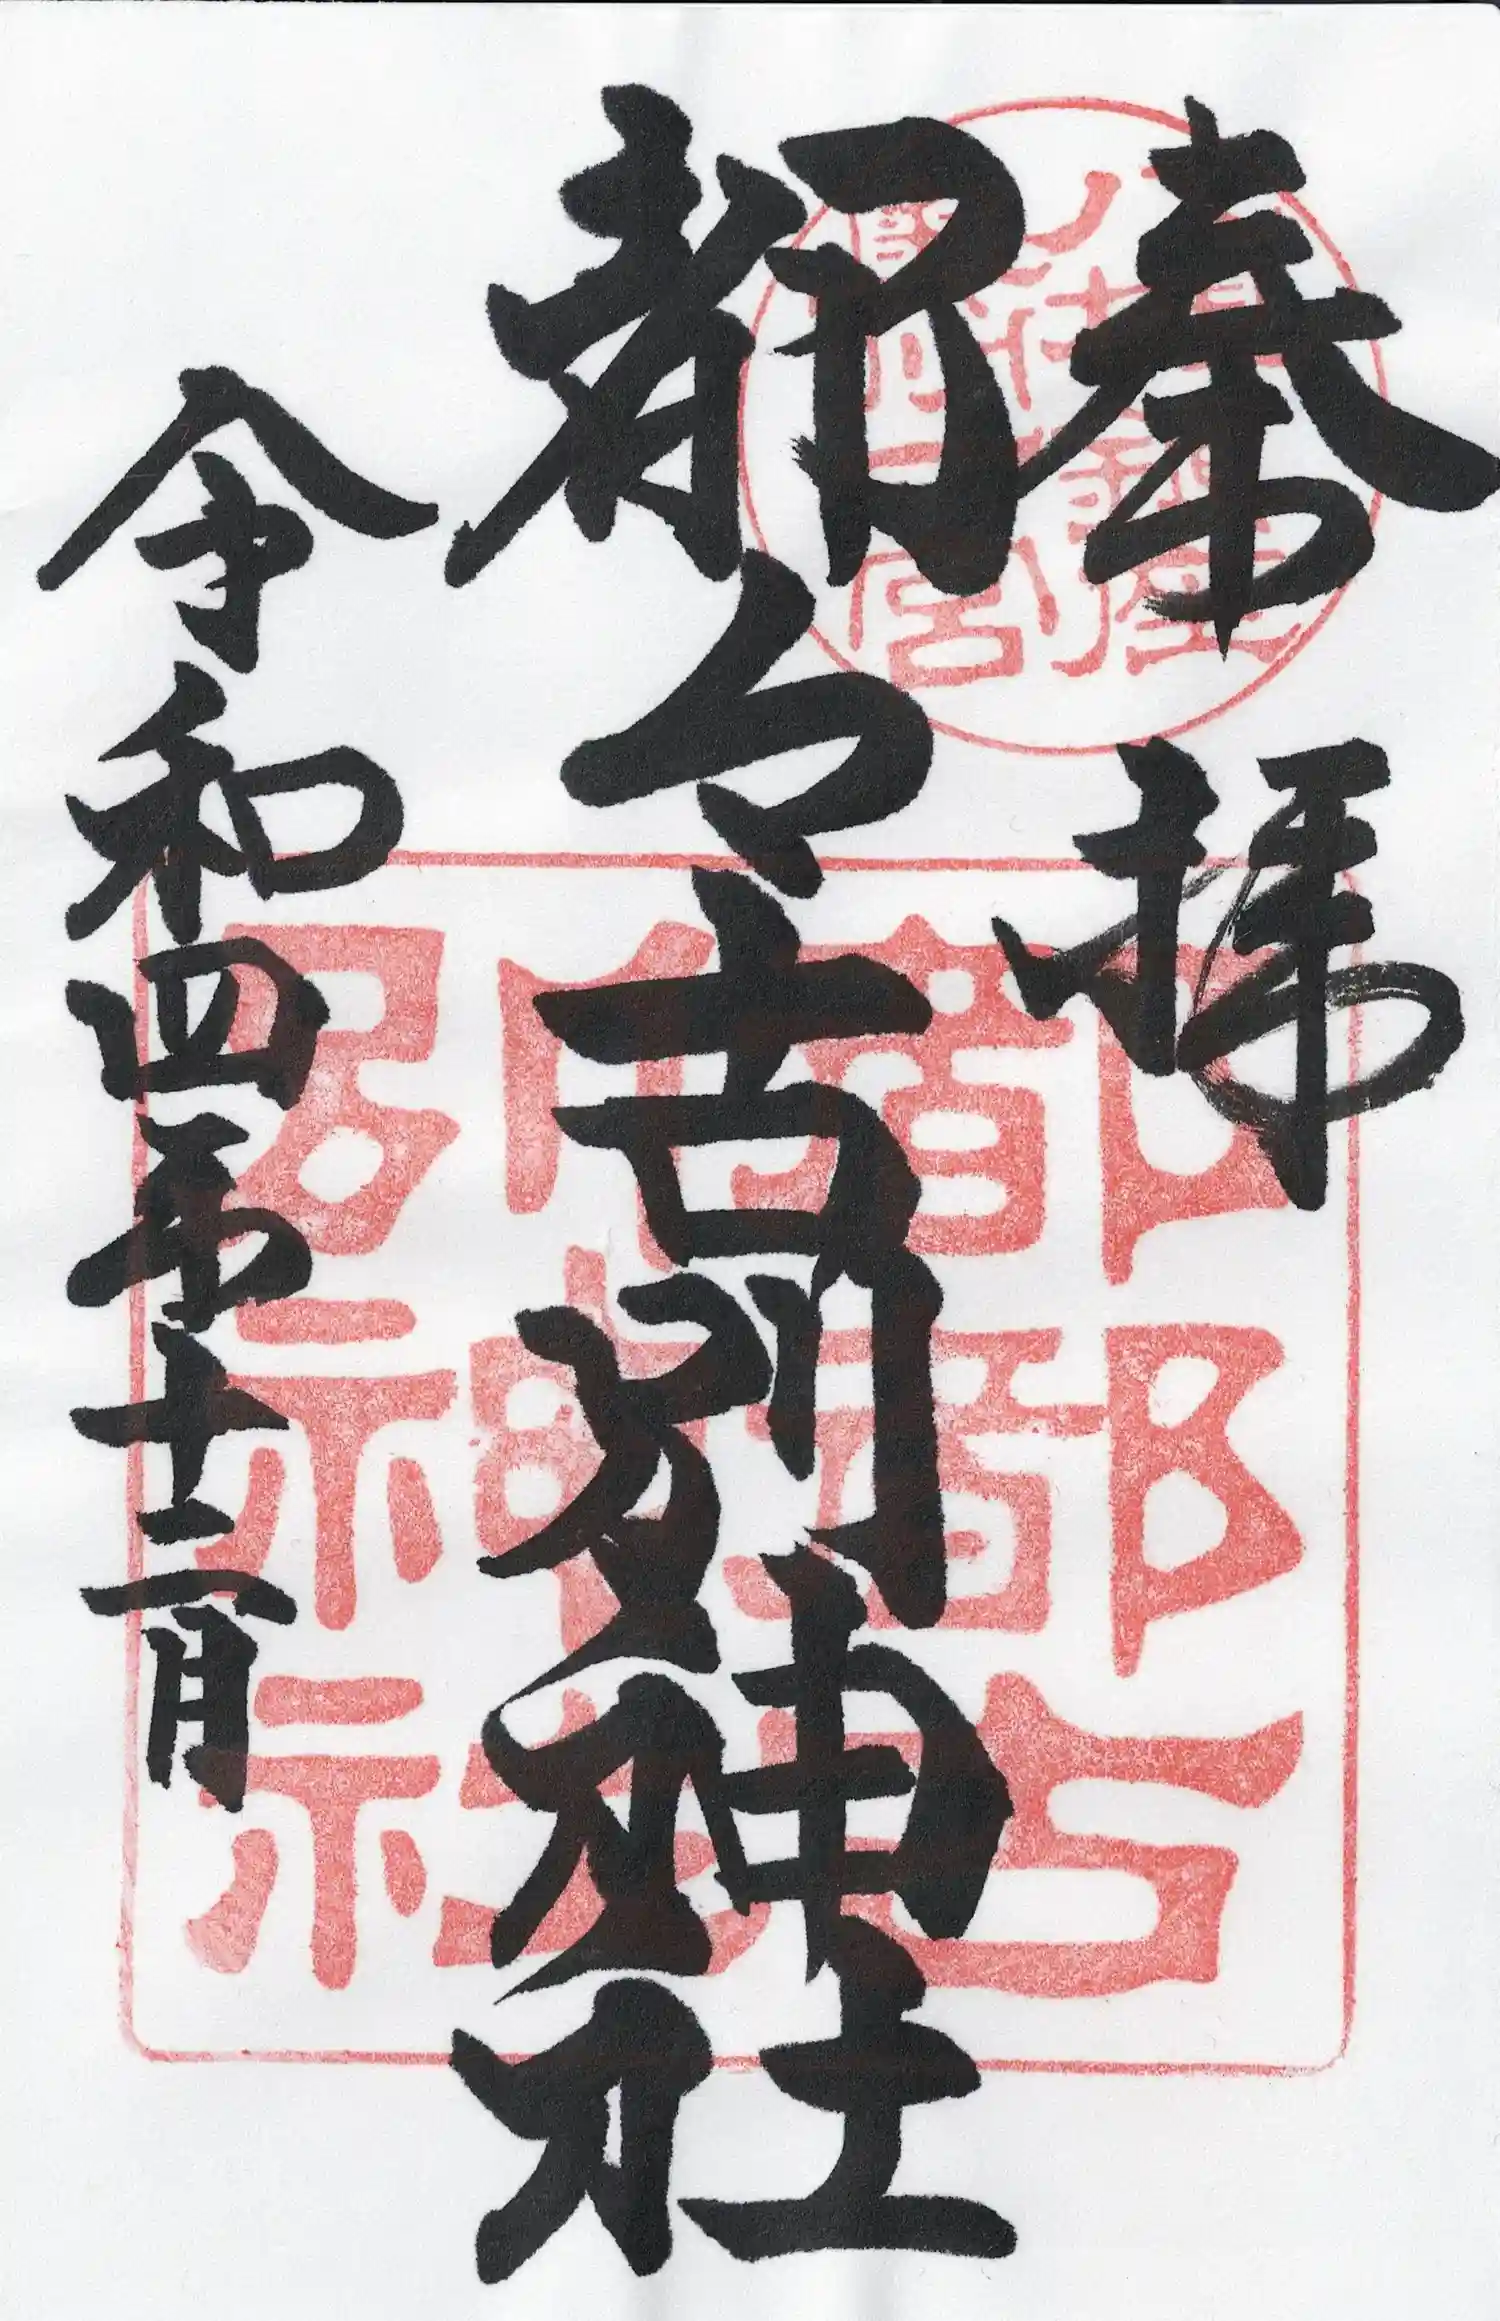 奉拝
都々古別神社
令和四年十二月
都都古別神社